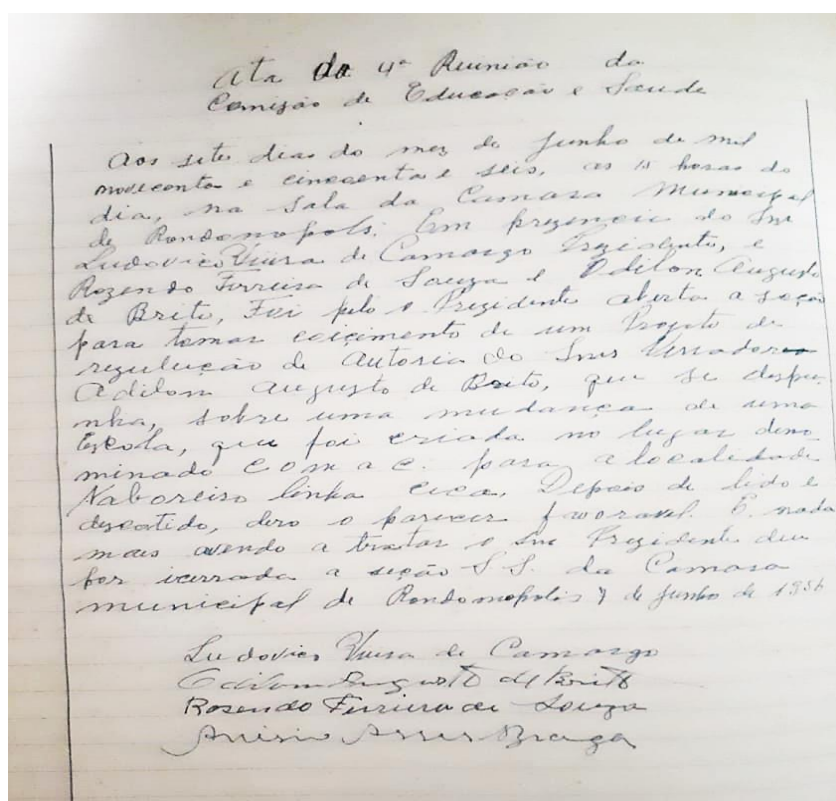 Ata da 4ª Reunião da
Comizão de Educação e Saude
Aos sete dias do mez de Junho de mil
novecenta e cincoenta e seis, as 15 horas do
dia, na Sala da Camara Municipal
de Rondonopolis. Em prezencia do Snr
Ludovico Vieira de Camargo Prezidente, e
Rozendo Ferreira de Souza e Odilon Augusto
de Brito, Foi pelo o Prezidente aberta a seção
para tomar de um Projeto de
regulução de Autoria do Snrs Vereadores
Adilom Augusto de Brito, que se despu-
nha, sobre uma mudança de uma
Escola, que foi criada no lugar deno
minado Comac. para a localidade
Naboreiro linha ceca. Depois de lido e
descotido, dero o parecer favoravel. E nada
mais avendo a tratar o Snr Prezidente deu
por icerrada a seção S.S. da Camara
municipal de Rondonopolis 7 de Junho de 1956
Ludovico Vieira de Camargo
Odilon Augusto de Brito
Rosendo Ferreira de Souza
Braga